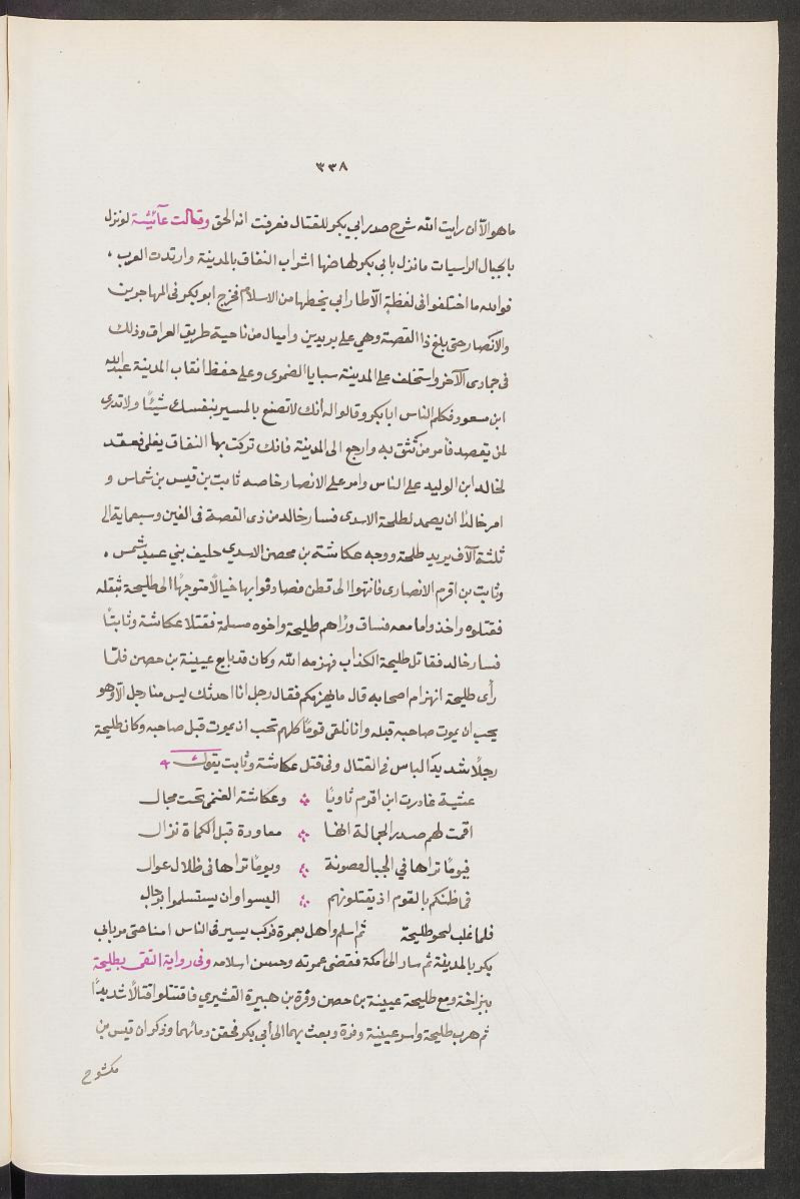 ٣٣٨
ما هو الا ان رايت الله شرح صدر ابي بكر للقتال فعرفت انه الحق وقالت عآئشة لو نزل
بالجبال الراسيات ما نزل بابي بكر لهاضها اشراب النفاق بالمدينة وارتدت العرب ،
فوالله ما اختلفوا فى لفظة الّا طار ابي بخطها من الاسلام فخرج ابو بكر فى المهاجرين
والانصار حتى بلغ ذا القصة وهي على بريدين واميال من ناحية طريق العراق وذلك
فى جمادى الآخر واستخلف على المدينة سبايا الضمرى وعلى حفظ انقاب المدينة عبد الله
ابن مسعود فكلم الناس ابا بكر وقالوا له انك لا تصنع بالمسير بنفسك شيئًا ولا تدرى
لمن يقصد فأمر من تثق به وارجع الى المدينة فانك تركت بها النفاق يغلى فعقد
لخالد ابن الوليد على الناس وامر على الانصار خاصه ثابت بن قيس بن شماس و
امر خالدًا ان يصمد لطلحة الاسدى فسار خالد من ذى القصة فى الفين وسبعماية الى
ثلثة آلاف يريد طلحة ووجه عكاشة بن محصن الاسدي حليف بني عبد شمس ،
وثابت بن اقرم الانصارى فانتهوا الى قطن فصادفوا بها خيالًا متوجهًا الى طليحة بثقله
فقتلوه واخذوا ما معه فساق ورآهم طليحة واخوه مسلمة فقتلا عكاشة وثابتًا
فسار خالد فقاتل طليحة الكذاب فهزمه الله وكان قد بايع عيينة بن حصن فلمّا
رأى طليحة انهزام اصحابه قال ما يهزمكم فقال رجل انا احدثك ليس منا رجل الّا وهو
يحب ان يموت صاحبه قبله وانا نلقى قومًا كلهم تحب ان يموت قبل صاحبه وكان طليحة
رجلًا شديد الباس فى القتال وفى قتل عكاشة وثابت يقول
عشية غادرت ابن اقرم ثاويًا وعكاشة الغنمى تحت مجال
اقمت لهم صدر الجمالة انها معاودة قبل الكماة نزال
فيومًا تراها في الجبال مصونة ويومًا تراها فى ظلال عوال
فما ظنكم بالقوم اذ يقتلونهم اليسوا وان يستسلموا برجال
فلما غلب لحق طليحة ثم اسلم واهل بعمرة فركب يسير فى الناس امنا حتى مر بابي
بكر بالمدينة ثم سار الى مكة فقضى عمرته وحسن اسلامه وفى رواية التقى بطليحة
ببزاخة ومع طليحة عيينة بن حصن وقرة بن هبيرة القشيري فاقتتلوا قتالًا شديدًا
ثم هرب طليحة واسر عيينة وقرة وبعث بهما الى أبي بكر فحقن دمائهما وذكر ان قيس بن
مكشوح